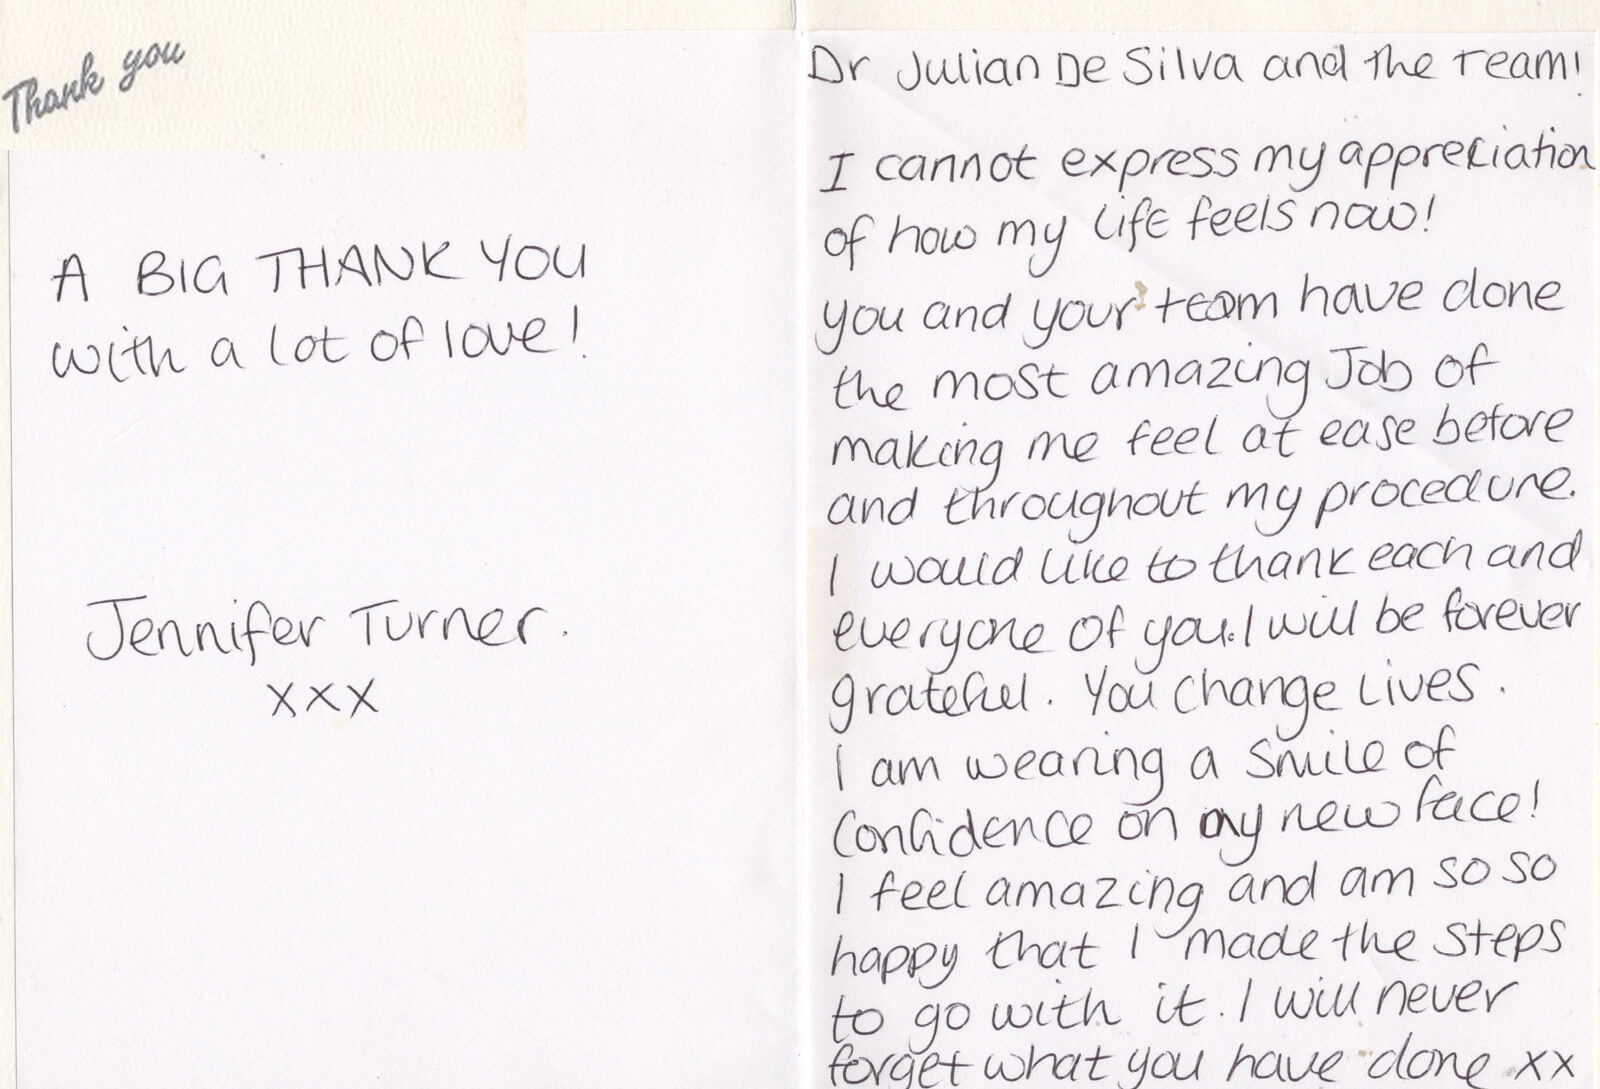 Thank you
A BIG THANK YOU
with a lot of love!
Jennifer Turner.
xxx
Dr Julian De Silva and the team!
I cannot express my appreciation
of how my life feels now!
you and your team have done
the most amazing Job of
making me feel at ease before
and throughout my procedure.
I would like to thank each and
everyone of you. I will be forever
grateful. You change lives.
I am wearing a smile of
confidence on my new face!
I feel amazing and am so so
happy that I made the steps
to go with it. I will never
forget what you have done xx